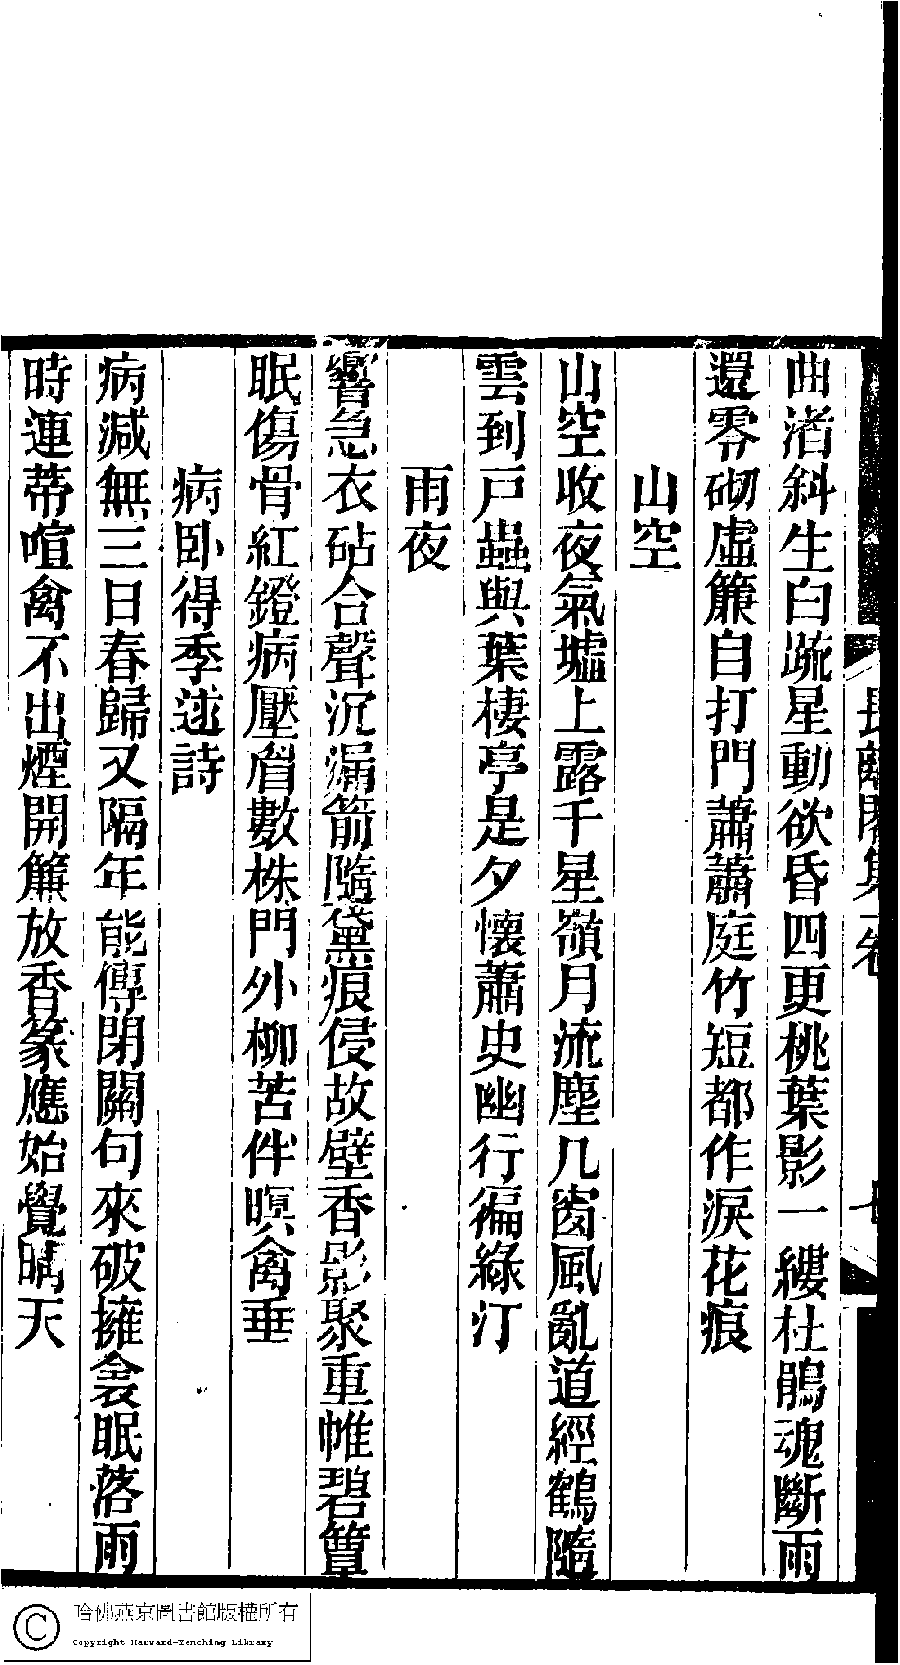 長離閣集
曲渚斜生白疏星動欲昏四更桃葉影一縷杜鵑魂斷雨
還零砌虛簾自打門蕭蕭庭竹短都作淚花痕
山空
山空收夜氣墟上露千星嶺月流塵几窗風亂道經鶴隨
雲到戸蟲與葉棲亭是夕懷蕭史幽行徧綠汀
雨夜
響急衣砧合聲沉漏箭隨黛痕侵故壁香影聚重帷碧簟
眠傷骨紅鐙病壓眉數株門外柳苦伴暝禽垂
病臥得季逑詩
病減無三日春歸又隔年能傳閉關句來破擁衾眠落雨
時連蒂喧禽不出煙開簾放香篆應始覺晴天
哈佛燕京圖書館版權所有
Copyright Harvard-Yenching Library